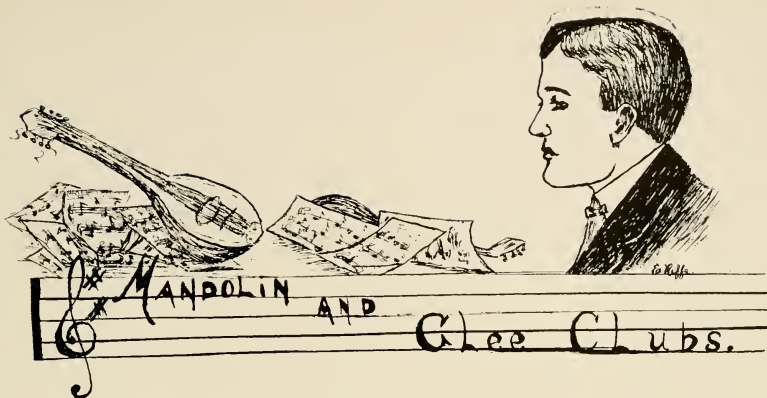 MANDOLIN AND GLee CLubs.